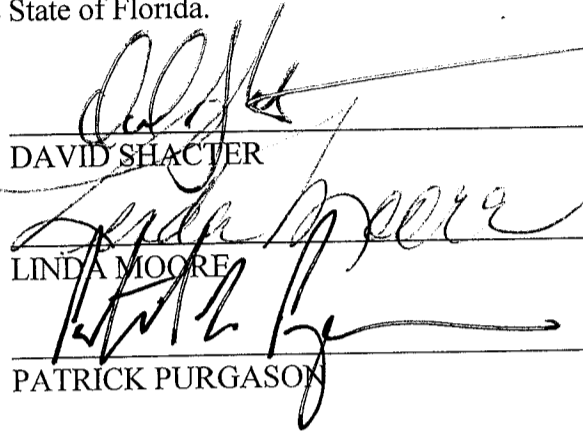 State of Florida.
DAVID SHACTER
Linda Moore
LINDA MOORE
PATRICK PURGASON